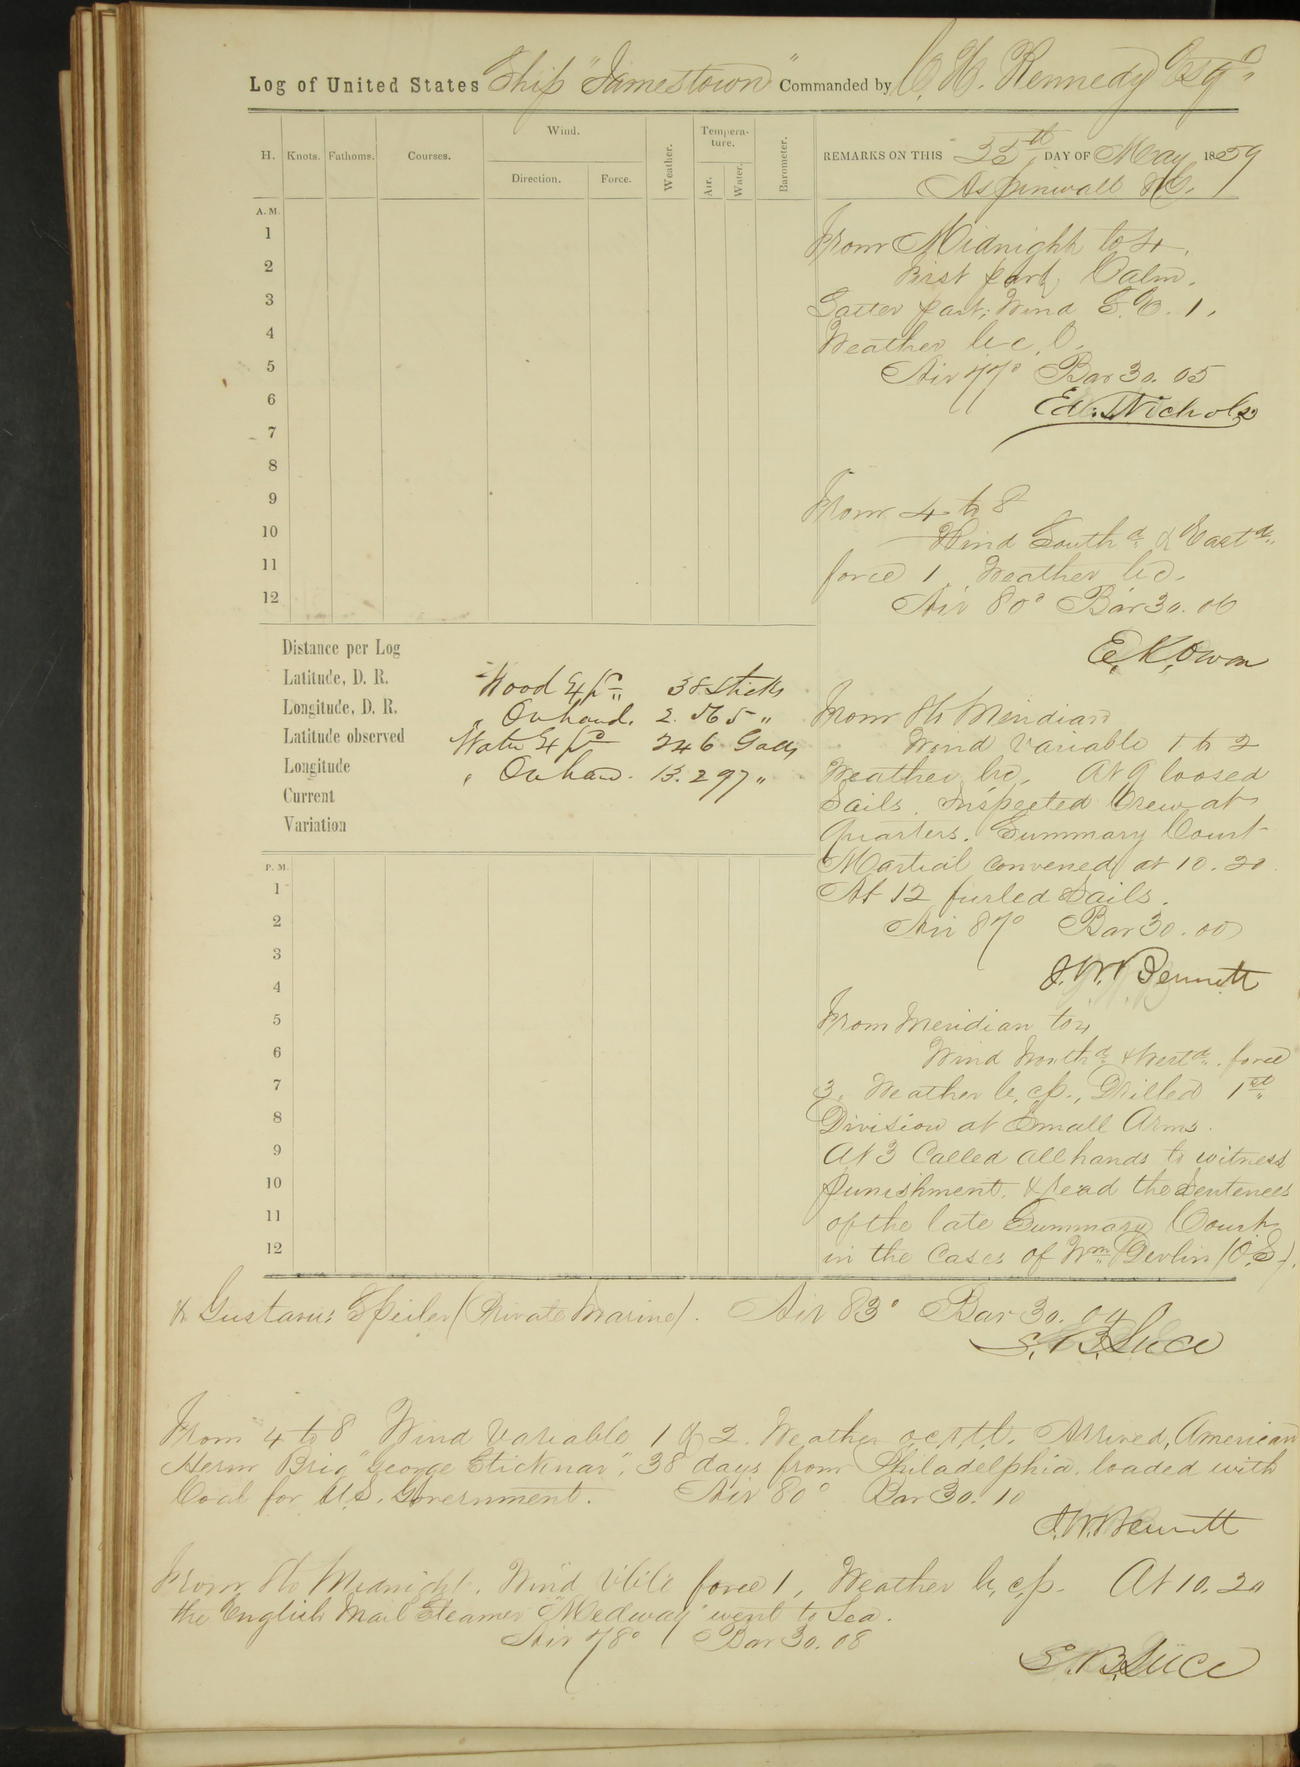 Log of United States Ship "Jamestown" Commanded by C. H. Kennedy Esqr.
H. Knots. Fathoms. Courses. Wind. Direction. Force. Weather. Tempera-ture. Air. Water. Barometer.
REMARKS ON THIS 25th DAY OF May, 1859
Aspinwall N.G.
A.M.
1
2
3
4
5
6
7
8
9
10
11
12
From Midnight to 4.
First part, Calm.
Latter part, Wind S.E. 1.
Weather b.c.
Air 77° Bar 30.05
Ed. T. Nichols
From 4 to 8
Wind Southd. & Eastd.
force 1. Weather b.c.
Air 80° Bar 30.06
E. K. Owen
Distance per Log
Latitude, D. R.
Longitude, D. R.
Latitude observed
Longitude
Current
Variation
Wood Exp. 38 sticks
" On hand. 2.565 "
Water Exp. 246 Galls
" On hand. 13.297 "
From 8 to Meridian
Wind Variable 1 to 2
Weather b.c. At 9 loosed
Sails. Inspected Crew at
quarters. Summary Court
Martial convened at 10.20.
At 12 furled Sails.
Air 87° Bar 30.00
J. W. Bennett
P.M.
1
2
3
4
5
6
7
8
9
10
11
12
From Meridian to 4
Wind Northd. & Westd. force
3. Weather b.c.p., Drilled 1st
Division at Small Arms.
At 3 Called all hands to witness
punishment. & read the Sentences
of the late Summary Court
in the Cases of Wm. Devlin (O.S.).
& Gustavus Speiler (Private Marine). Air 83° Bar 30.04
S. B. Luce
From 4 to 8 Wind Variable 1 & 2. Weather o.c.r.t.l. Arrived, American
Herm Brig "George Sticknar", 38 days from Philadelphia. loaded with
Coal for U.S. Government. Air 80° Bar 30.10
J. W. Bennett
From 8 to Midnight. Wind Vble force 1, Weather b.c.p. At 10.20
the English Mail Steamer "Medway" went to Sea.
Air 78° Bar 30.08
S. B. Luce